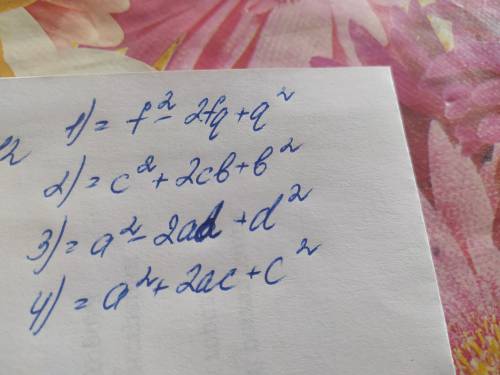 1) = f² - 2fq + q²
2) = c² + 2cb + b²
3) = a² - 2ad + d²
4) = a² + 2ac + c²